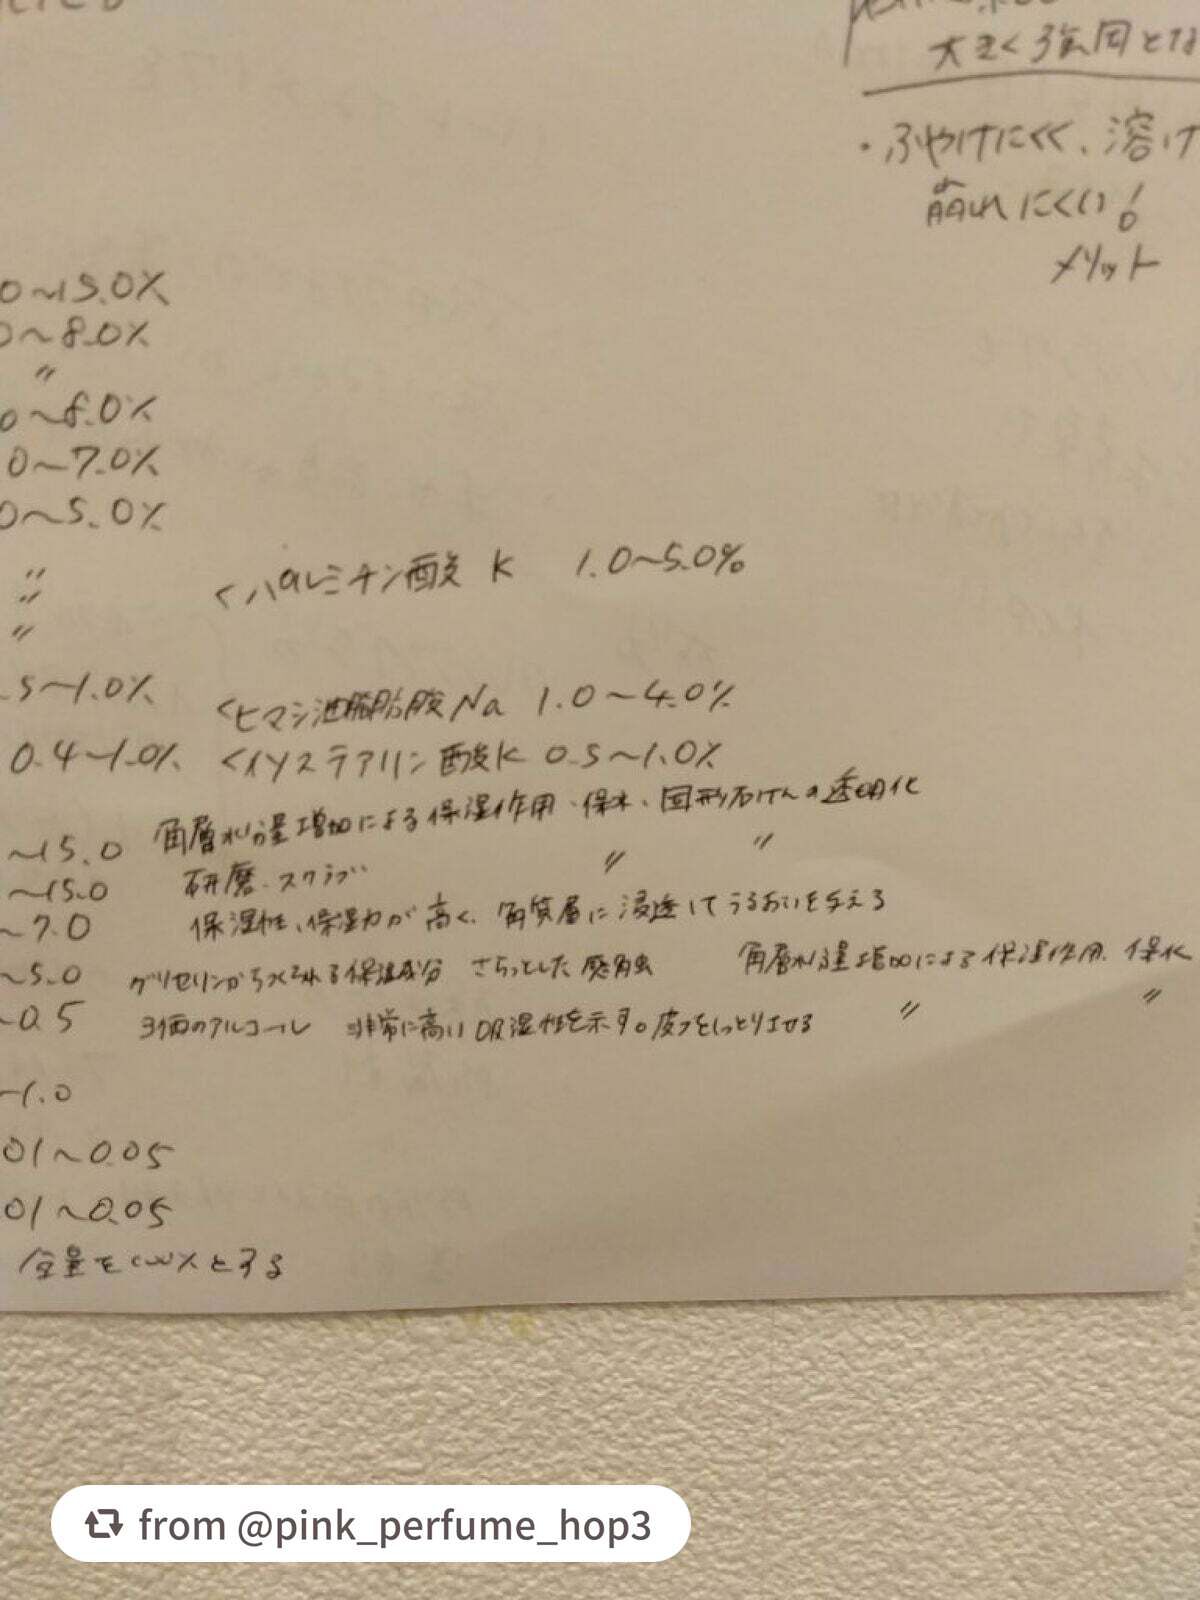 大きく強固とな
・ふやけにくく、溶け
崩れにくい!
メリット
0~15.0%
0~8.0%
〃
0~8.0%
0~7.0%
0~5.0%
〃
〃
<パルミチン酸K 1.0~5.0%
.5~1.0%
<ヒマシ油脂肪酸Na 1.0~4.0%
0.4~1.0% <イソステアリン酸K 0.5~1.0%
~15.0 角層水分量増加による保湿作用・保水、固形石けんの透明化
~15.0 研磨・スクラブ 〃 〃
~7.0 保湿性、保湿力が高く、角質層に浸透してうるおいを与える
~5.0 グリセリンからつくられる保湿成分 さらっとした感触 角層水分量増加による保湿作用、保水
~0.5 3価のアルコール 非常に高い吸湿性を示す。皮フをしっとりさせる 〃 〃
~1.0
01~0.05
01~0.05
全量を100%とする
from @pink_perfume_hop3